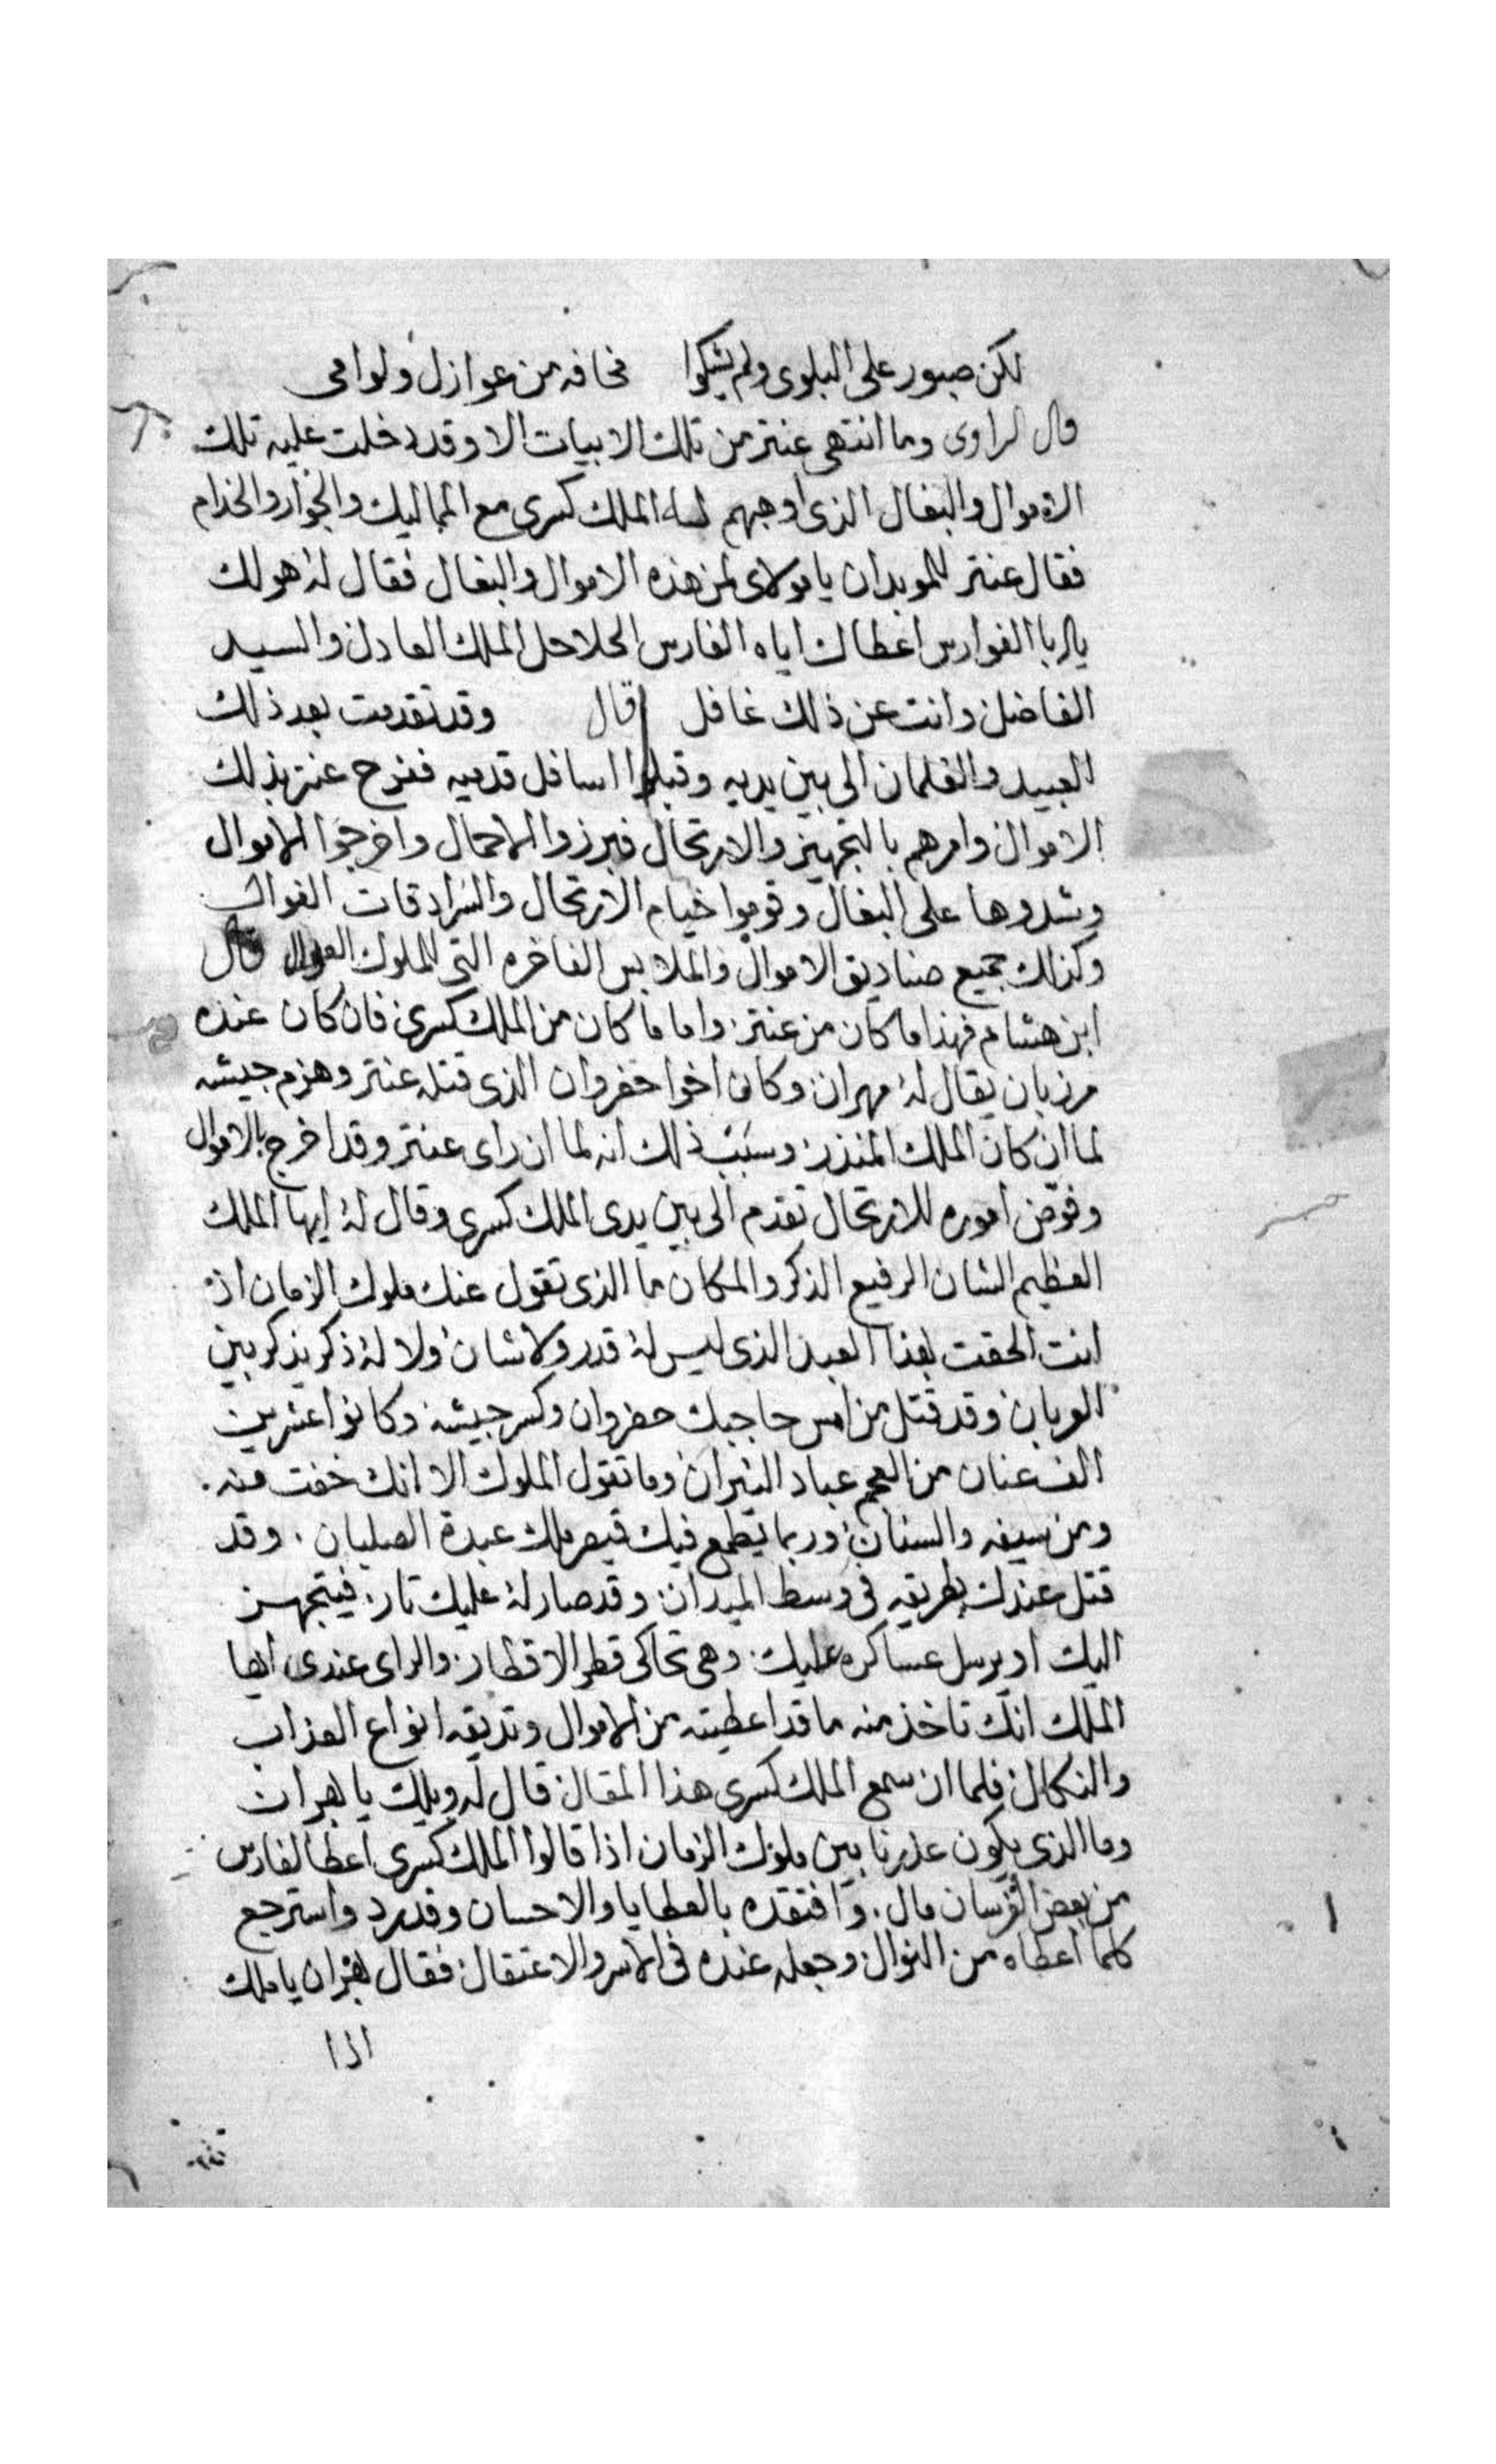 لكن صبور على البلوى ولم يشكوا مخافه من عوازل ولوامى
قال الراوى وما انتهى عنتر من تلك الابيات الا وقد دخلت عليه تلك
الاموال والبغال الذى اوجبهم له الملك كسرى مع المماليك والجوار والخدام
فقال عنتر للموبدان يا مولاى لمن هذه الاموال والبغال فقال له هو لك
يا ابا الفوارس اعطاك اياه الفارس الحلاحل الملك العادل والسيد
الفاضل وانت عن ذلك غافل قال وقد تقدمت بعد ذلك
العبيد والغلمان الى بين يديه وقبلوا اسافل قدميه ففرح عنتر بذلك
الاموال وامرهم بالتجهيز والارتحال فبرزوا الاحمال واخرجوا الاموال
وشدوها على البغال وقوموا خيام الارتحال والسرادقات الغوال
وكذلك جميع صناديق الاموال والملابس الفاخره التى للملوك العوال قال
ابن هشام فهذا ما كان من عنتر واما ما كان من الملك كسرى فان كان عنده
مرزبان يقال له مهران وكان اخوا خفروان الذى قتله عنتر وهزم جيشه
لما ان كان الملك المنذر وسبب ذلك انه لما ان راى عنتر وقد اخرج بالاموال
وفوض اموره للارتحال تقدم الى بين يدى الملك كسرى وقال له ايها الملك
العظيم الشان الرفيع الذكر والمكان ما الذى تقول عنك ملوك الزمان اذ
انت الحقت بهذا العبد الذى ليس له قدر ولا شان ولا له ذكر يذكر بين
العربان وقد قتل من امس حاجبك خفروان وكسر جيشه وكانوا عشرين
الف عنان من العجم عباد النيران وما تقول الملوك الا انك خفت منه
ومن سيفه والسنان وربما يطمع فيك قيصر ملك عبدة الصلبان وقد
قتل عندك بطريقه فى وسط الميدان وقد صار له عليك تار فيتجهز
اليك او يرسل عساكره عليك وهى تحاكى قطر الاقطار والراى عندى ايها
الملك انك تاخذ منه ما قد اعطيته من الاموال وتديقه انواع العذاب
والنكال فلما ان سمع الملك كسرى هذا المقال قال له ويلك يا بهران
وما الذى يكون عذرنا بين ملوك الزمان اذا قالوا الملك كسرى اعطا لفارس
من بعض الفرسان مال وافتقده بالعطايا والاحسان وقد رد واسترجع
كلما اعطاه من النوال وجعله عنده فى الاسر والاعتقال فقال بهران يا ملك
اذا